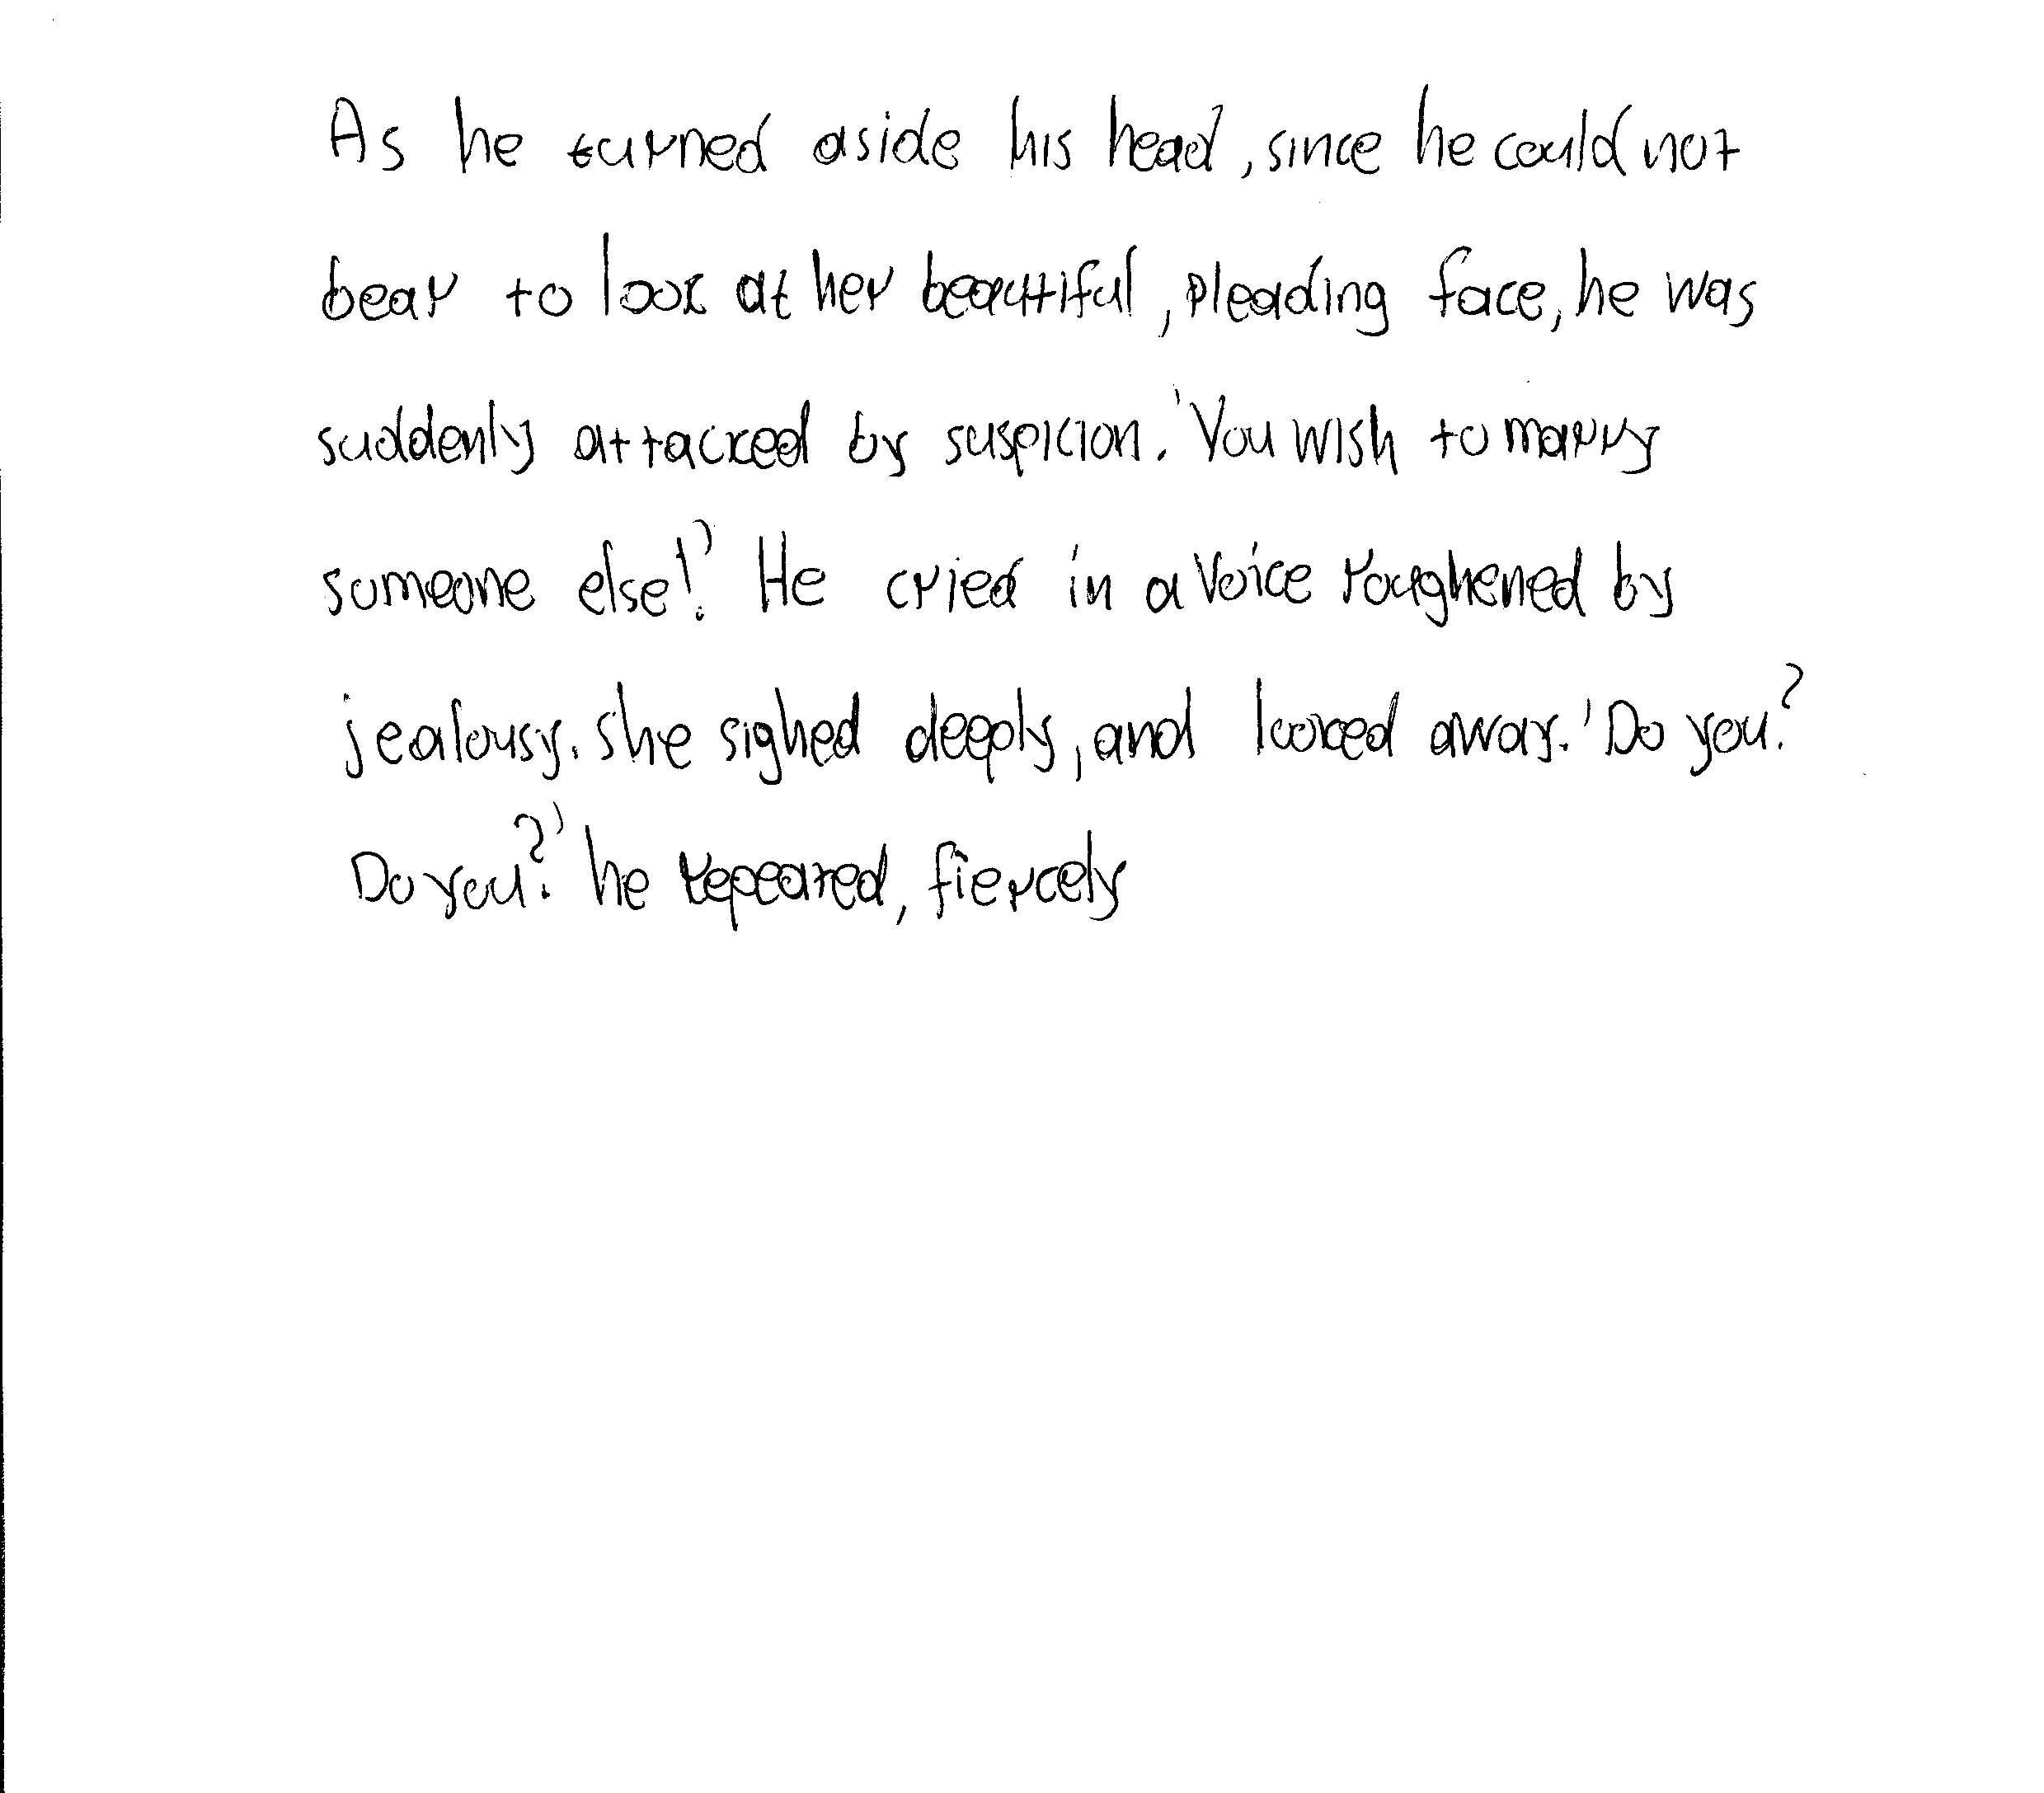 As he turned aside his head, since he could not
bear to look at her beautiful, pleading face, he was
suddenly attacked by suspicion. 'You wish to marry
someone else!' He cried in a voice roughened by
jealousy. She sighed deeply, and looked away. 'Do you?
Do you?' he repeated, fiercely